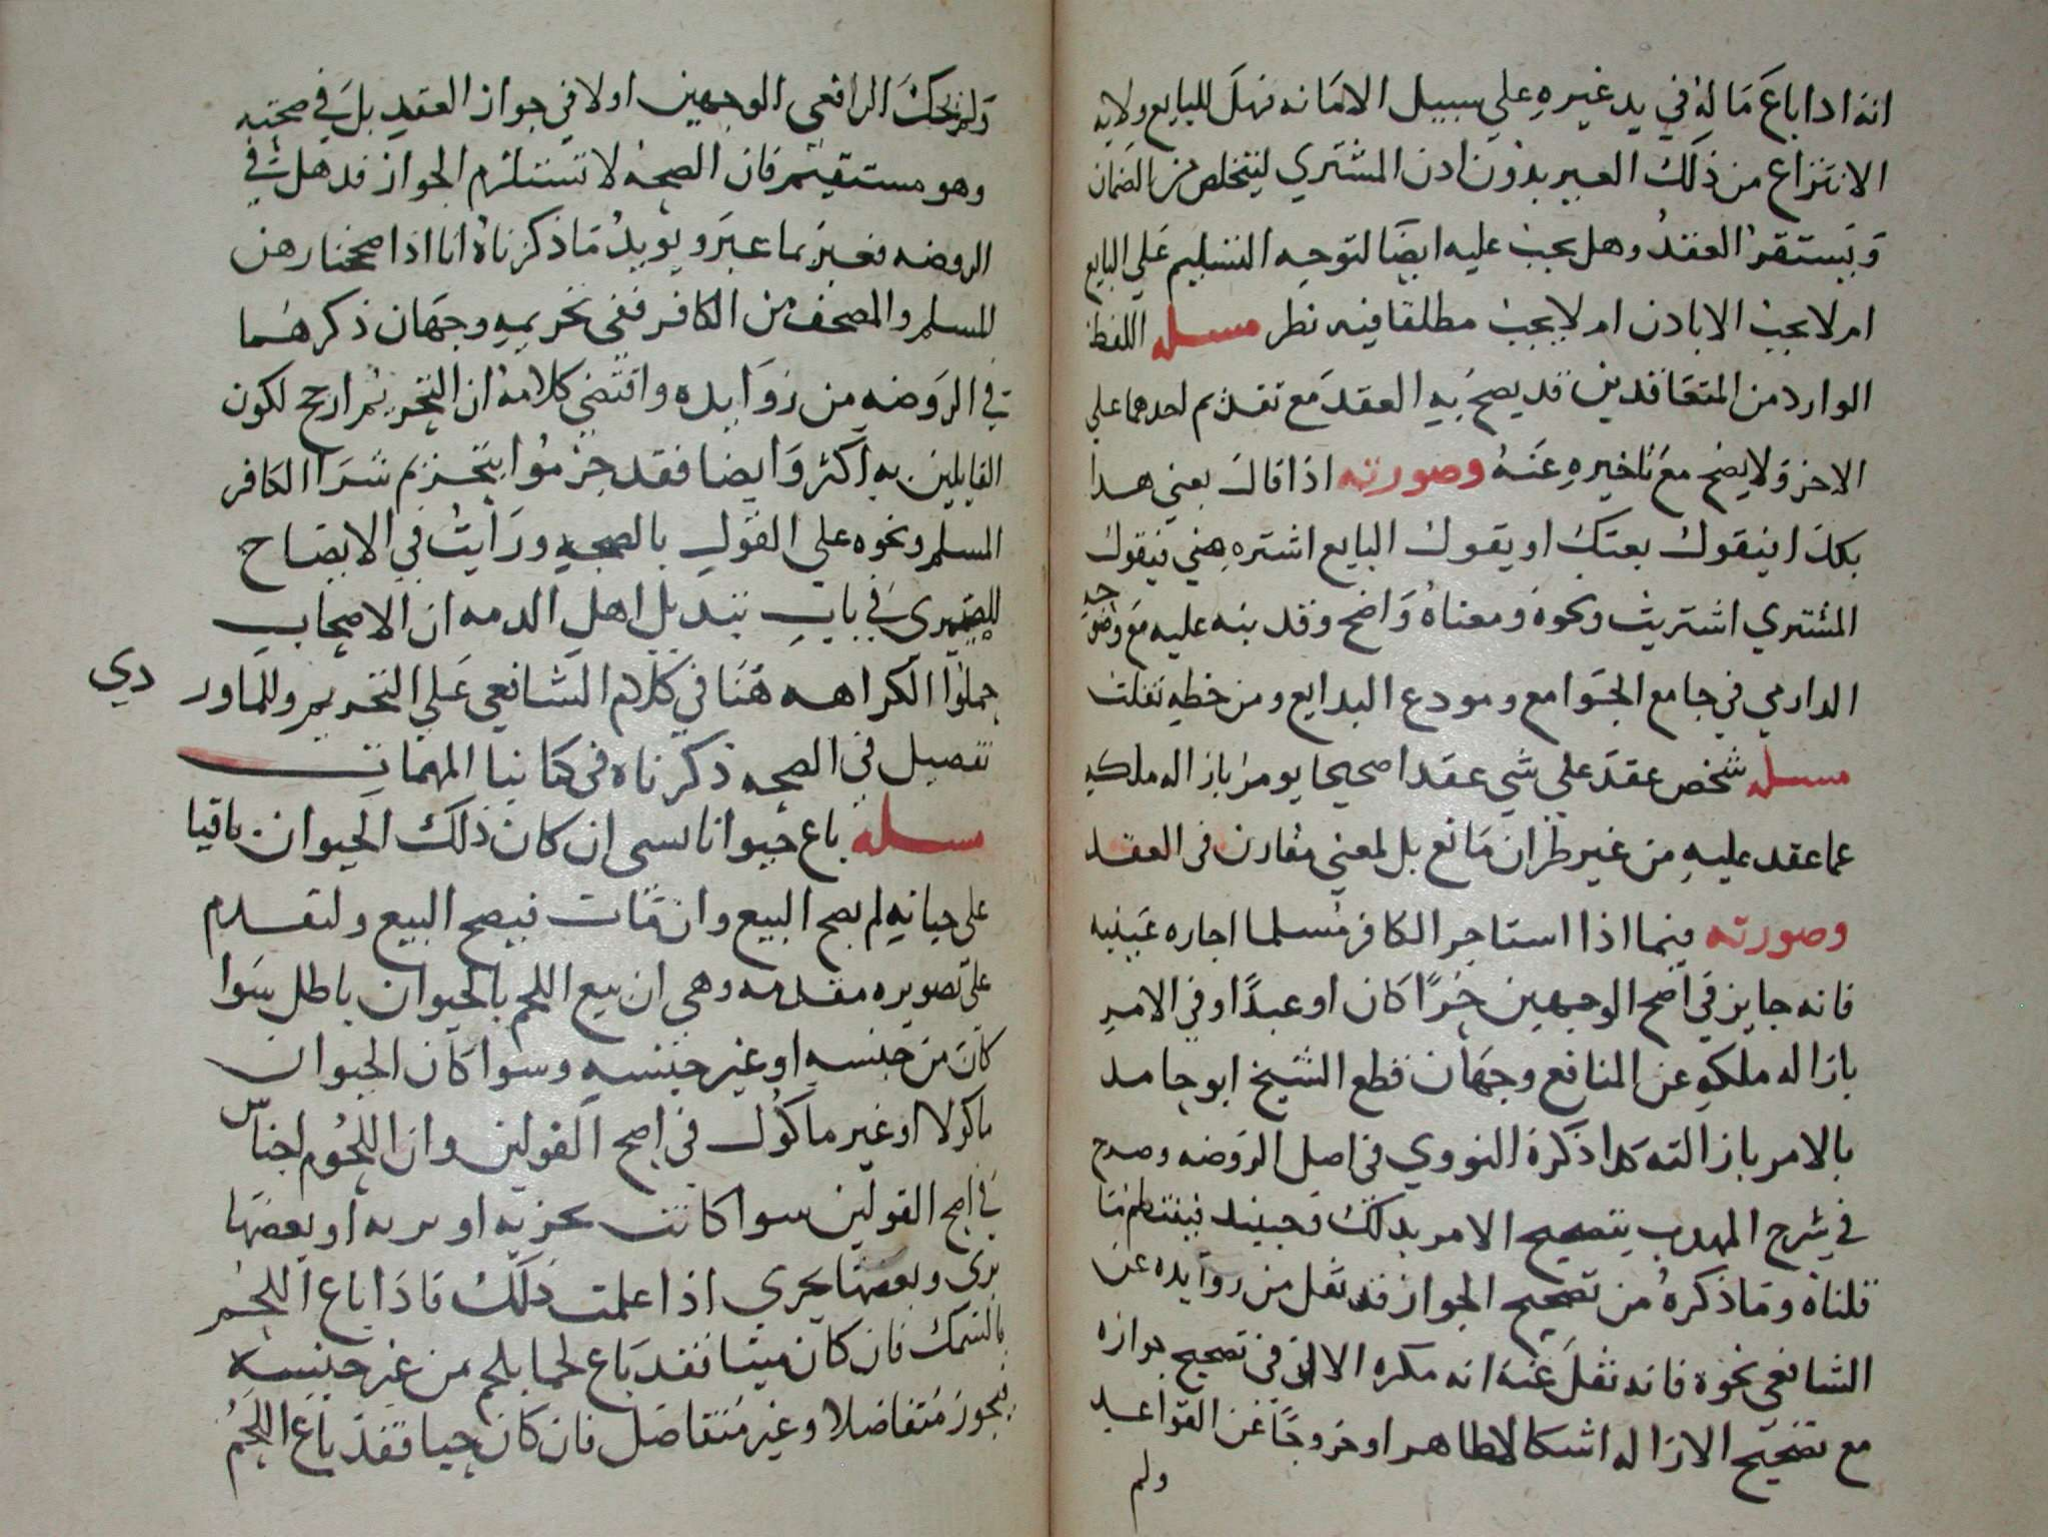 انه اذا باع ماله في يد غيره على سبيل الامانه فهل للبايع ولايه
الانتزاع من ذلك الغير بدون اذن المشتري ليتخلص من الضمان
ويستقر العقد وهل يجب عليه ايضا لتوجه التسليم على البايع
ام لا يجب الا باذن ام لا يجب مطلقا فيه نظر مسله اللفظ
الوارد من المتعاقدين قد يصح به العقد مع تقديم احدهما على
الاخر ولا يصح مع تاخيره عنه وصورته اذا قال بعني هذا
بكذا فيقول بعتك او يقول البايع اشتره مني فيقول
المشتري اشتريت ونحوه ومعناه واضح وقد نبه عليه مع وضوحه
الدارمي في جامع الجوامع ومودع البدايع ومن خطه نقلت
مسله شخص عقد على شي عقدا صحيحا يومر بازاله ملكه
عما عقد عليه من غير طران مانع بل لمعني مقارن في العقد
وصورته فيما اذا استاجر الكافر مسلما اجاره عينيه
فانه جايز في اصح الوجهين حرا كان او عبدا وفي الامر
بازاله ملكه عن المنافع وجهان قطع الشيخ ابو حامد
بالامر بازالته كذا ذكره النووي في اصل الروضه وصرح
في شرح المهذب بتصحيح الامر بذلك فحينيد فينتظم ما
قلناه وما ذكره من تصحيح الجواز قد نقل من زوايده عن
الشافعي نحوه فانه نقل عنه انه مكره الا ان في تصحيح جوازه
مع تصحيح الازاله اشكالا ظاهرا وخروجا عن القواعد
ولم
ولم يحك الرافعي الوجهين اولا في جواز العقد بل في صحته
وهو مستقيم فان الصحه لا تستلزم الجواز فذهل في
الروضه فعبر بما عبر ويويد ما ذكرناه انا اذا صححنا رهن
المسلم والمصحف من الكافر ففي تحريمه وجهان ذكرهما
في الروضه من زوايده واقتضي كلامه ان التحريم ارجح لكون
القايلين به اكثر وايضا فقد جزموا بتحريم شرا الكافر
المسلم ونحوه على القول بالصحه ورايت في الايضاح
للصيمري في باب تبديل اهل الذمه ان الاصحاب
حملوا الكراهه هنا في كلام الشافعي على التحريم وللماوردي
تفصيل في الصحه ذكرناه في كتابنا المهمات
مسله باع حيوانا بشي ان كان ذلك الحيوان باقيا
على حياته لم يصح البيع وان مات فيصح البيع ولنقدم
على تصويره مقدمه وهي ان بيع اللحم بالحيوان باطل سوا
كان من جنسه او غير جنسه وسوا كان الحيوان
ماكولا او غير ماكول في اصح القولين وان اللحوم اجناس
في اصح القولين سوا كانت بحريه او بريه او بعضها
بري وبعضها بحري اذا علمت ذلك فاذا باع اللحم
بالسمك فان كان ميتا فقد باع لحما بلحم من غير جنسه
فيجوز متفاضلا وغير متفاضل فان كان حيا فقد باع اللحم